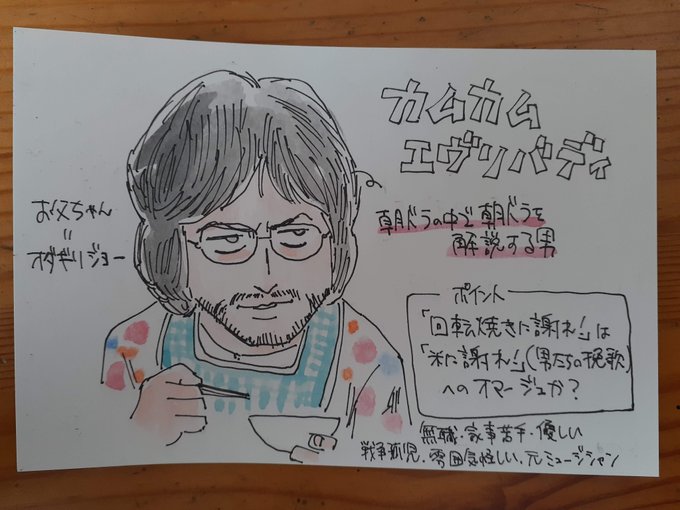 カムカム
エヴリバディ
お父ちゃん
＝
オダギリジョー
朝ドラの中で朝ドラを
解説する男
ポイント
「回転焼きに謝れ!」は
「米に謝れ!」(男たちの挽歌)
へのオマージュか?
無職・家事苦手・優しい
戦争孤児・雰囲気怪しい・元ミュージシャン